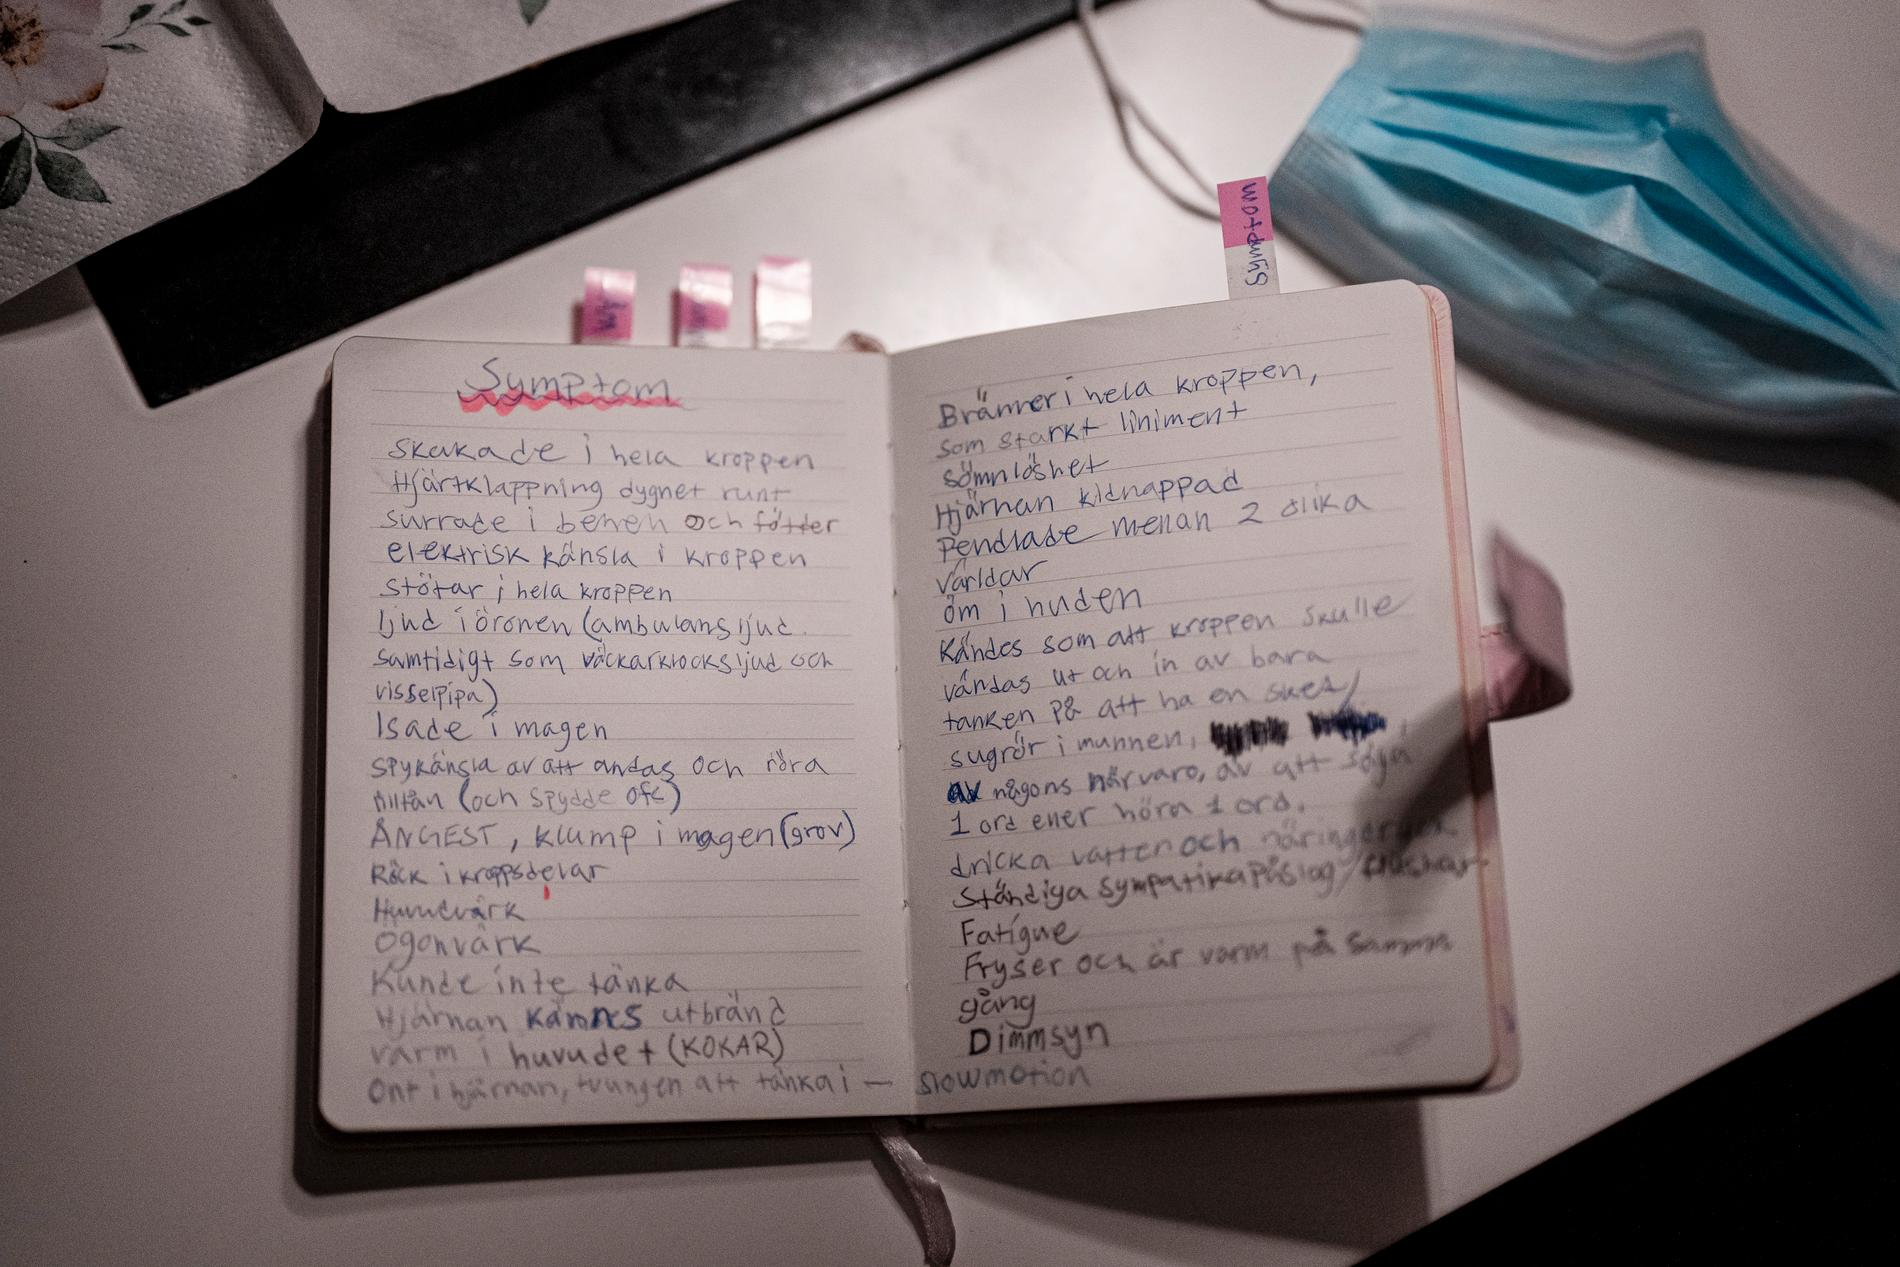 Symptom
Symptom
Skakade i hela kroppen
Hjärtklappning dygnet runt
surrade i benen och fötter
elektrisk känsla i kroppen
stötar i hela kroppen
ljud i öronen (ambulansljud
samtidigt som väckarklocksljud och
visselpipa)
Isade i magen
spykänsla av att andas och röra
(och spydde ofc)
ÅNGEST, klump i magen (grov)
Ryck i kroppsdelar
Huvudvärk
Ögonvärk
Kunde inte tänka
Hjärnan kändes utbränd
varm i huvudet (KOKAR)
Ont i hjärnan, tvungen att tänka i — slowmotion
Bränner i hela kroppen,
som starkt liniment
sömnlöshet
Hjärnan kidnappad
Pendlade mellan 2 olika
världar
öm i huden
Kändes som att kroppen skulle
vändas ut och in av bara
tanken på att ha en sked/
sugrör i munnen,
av någons närvaro, av att säga
1 ord eller höra 1 ord.
dricka vatten och näringsdryck
Ständiga sympatikapåslag/flushar
Fatigue
Fryser och är varm på samma
gång
Dimmsyn